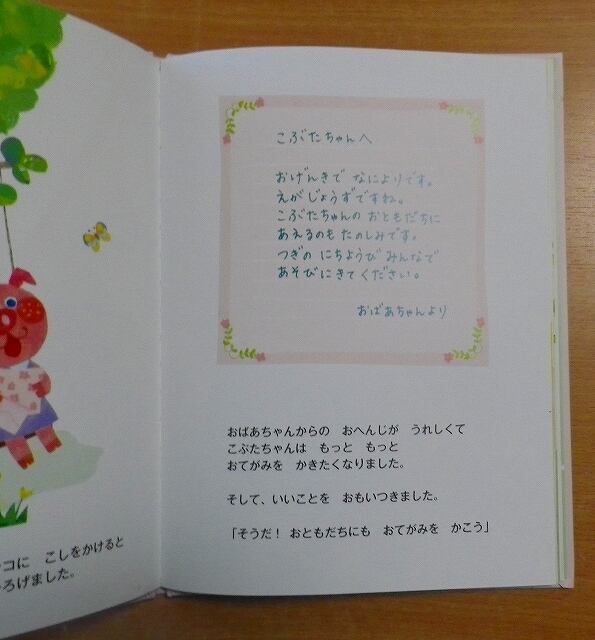 コに こしをかけると
ろげました。
こぶたちゃんへ
おげんきで なによりです。
えがじょうずですね。
こぶたちゃんの おともだちに
あえるのも たのしみです。
つぎの にちようび みんなで
あそびにきてください。
おばあちゃんより
おばあちゃんからの おへんじが うれしくて
こぶたちゃんは もっと もっと
おてがみを かきたくなりました。
そして、いいことを おもいつきました。
「そうだ! おともだちにも おてがみを かこう」